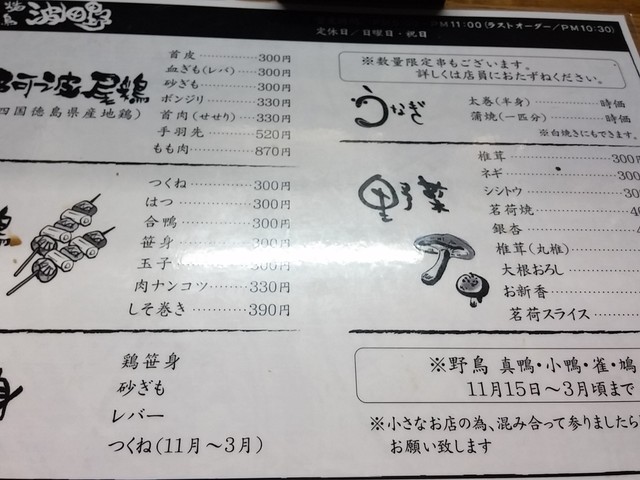 焼鳥 波田野
PM11:00(ラストオーダー/PM10:30)
定休日/日曜日・祝日
阿波尾鶏
(四国徳島県産地鶏)
首皮 300円
血ぎも(レバ) 300円
砂ぎも 300円
ボンジリ 330円
首肉(せせり) 330円
手羽先 520円
もも肉 870円
つくね 300円
はつ 300円
合鴨 300円
笹身 300円
玉子 300円
肉ナンコツ 330円
しそ巻き 390円
身
鶏笹身
砂ぎも
レバー
つくね(11月〜3月)
※数量限定串もございます。
詳しくは店員におたずねください。
うなぎ
太巻(半身) 時価
蒲焼(一匹分) 時価
※白焼きにもできます。
野菜
椎茸 300円
ネギ 300
シシトウ 30
茗荷焼 4
銀杏
椎茸(丸椎)
大根おろし
お新香
茗荷スライス
※野鳥 真鴨・小鴨・雀・鳩
11月15日〜3月頃まで
※小さなお店の為、混み合って参りましたら
お願い致します